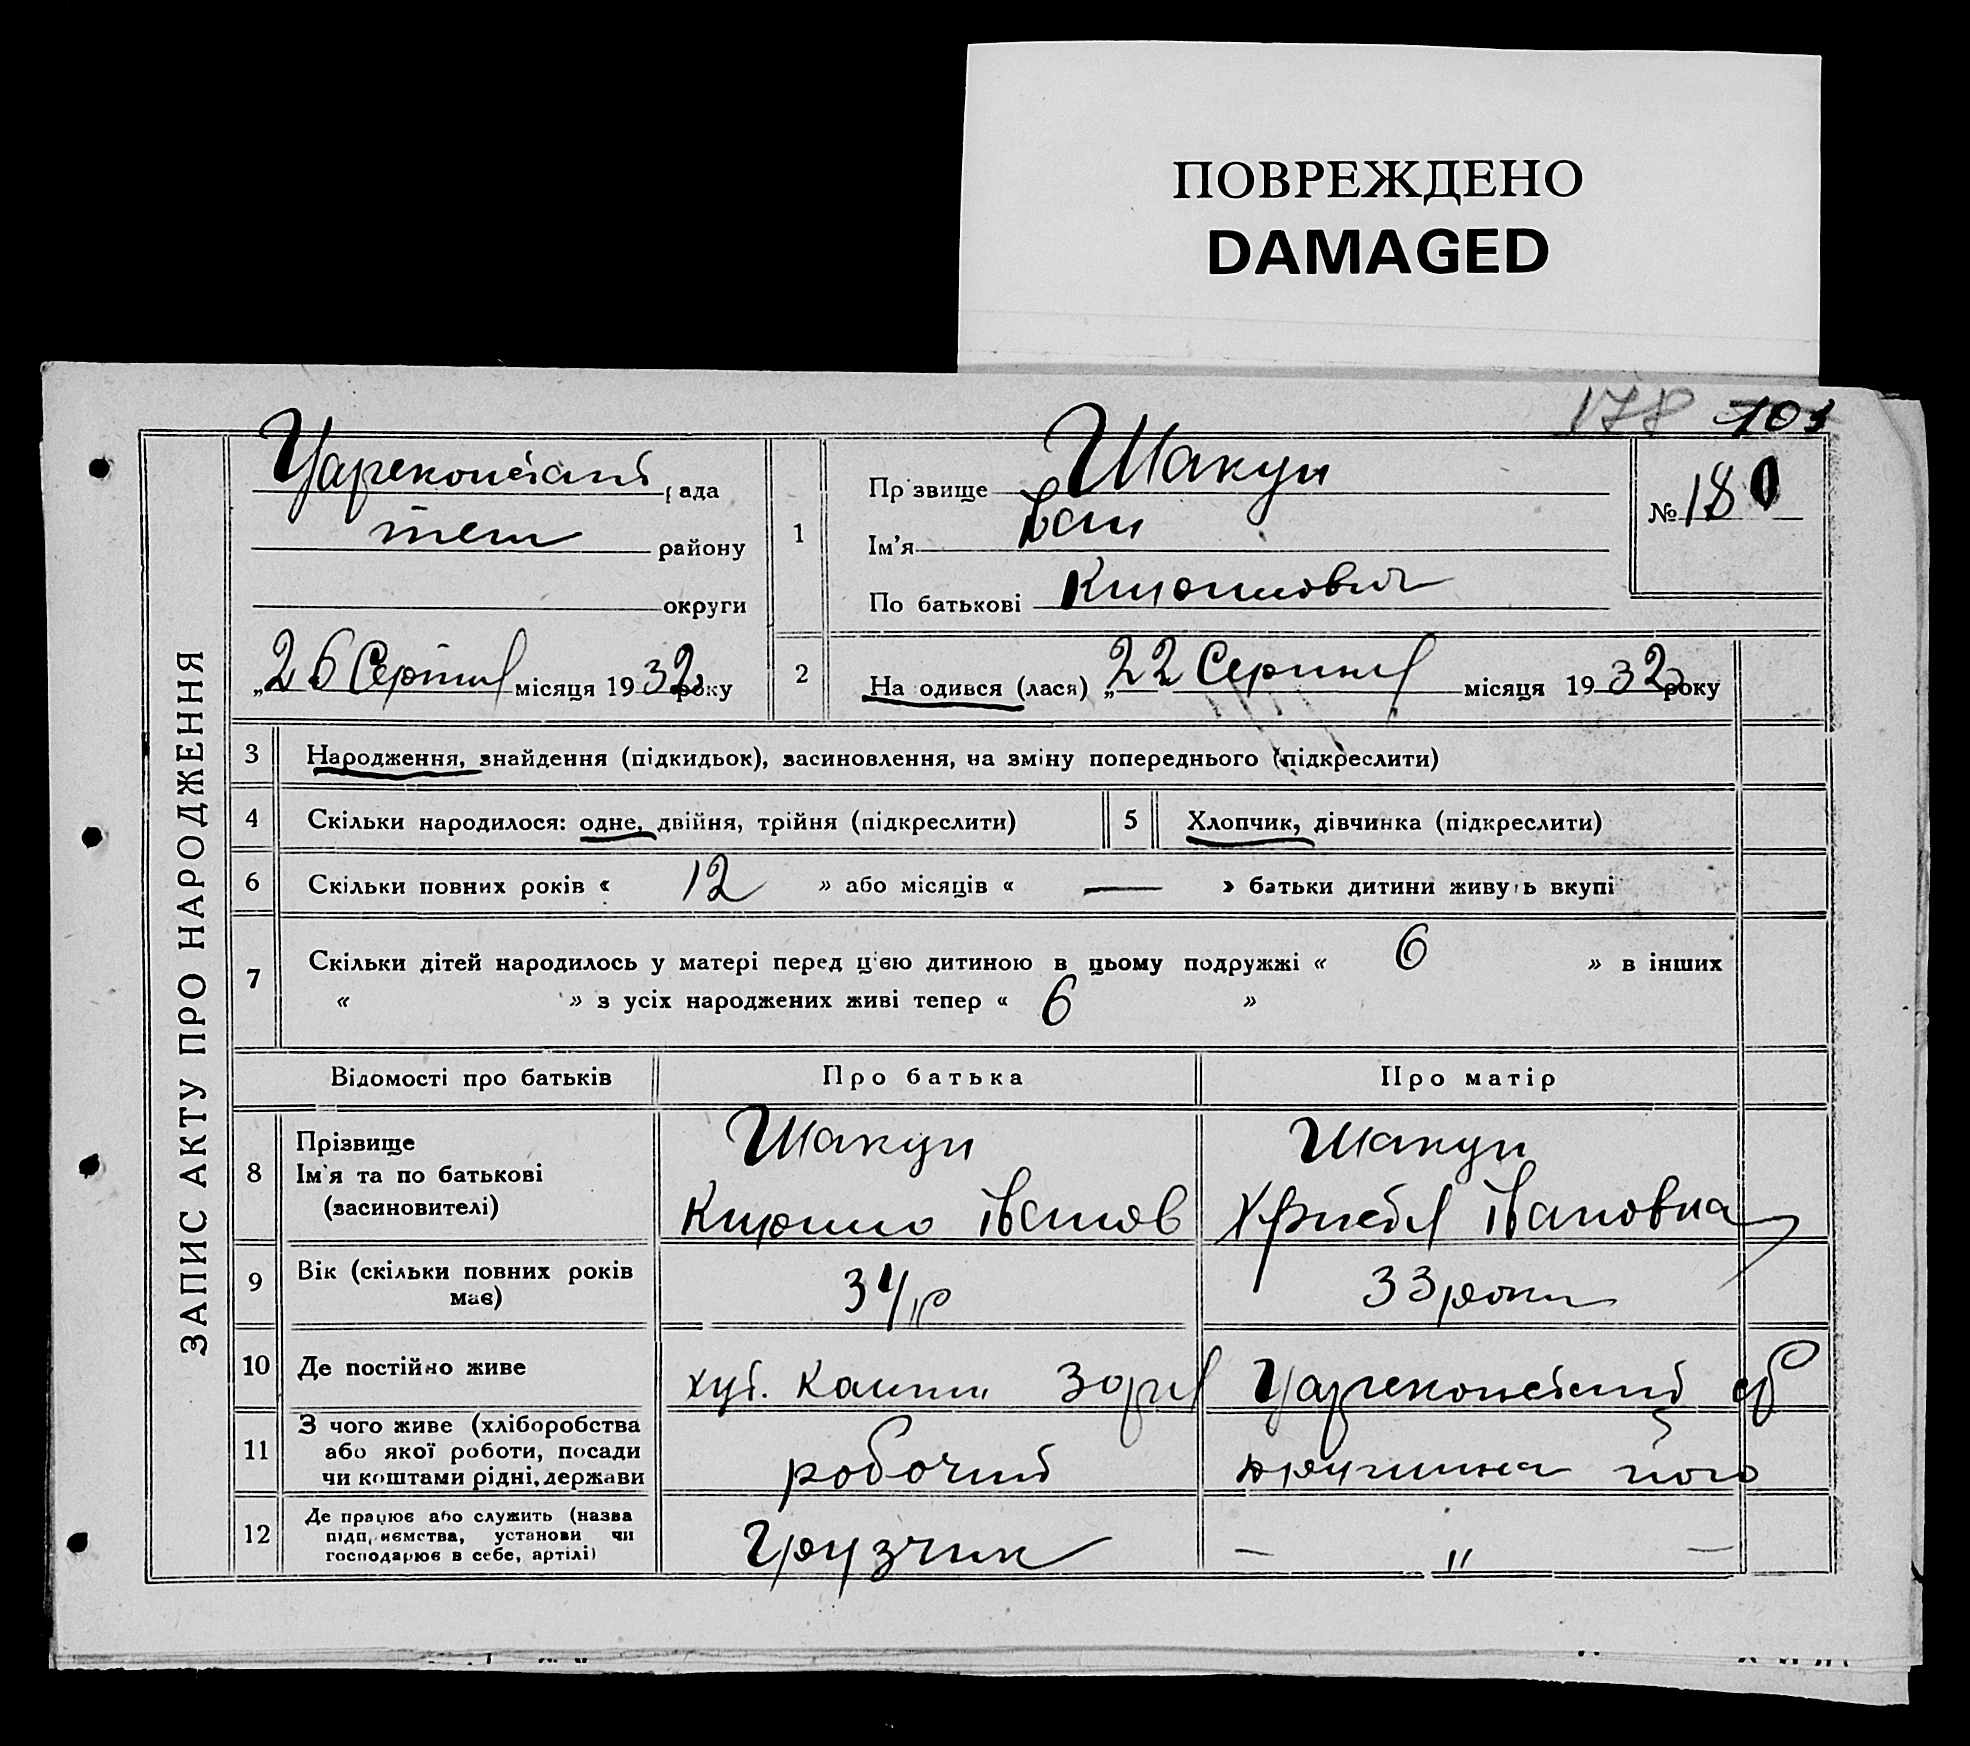 ПОВРЕЖДЕНО
DAMAGED
178 103
ЗАПИС АКТУ ПРО НАРОДЖЕННЯ
рада
теж району
округи
„26 Серпня місяця 1932 року
1
Пр звище Шакун
Ім'я Іван
По батькові Кирилович
№ 180
2
На одився (лася) „22 Серпня місяця 1932 року
3 Народження, знайдення (підкидьок), засиновлення, на зміну попереднього (підкреслити)
4 Скільки народилося: одне, двійня, трійня (підкреслити) 5 Хлопчик, дівчинка (підкреслити)
6 Скільки повних років « 12 » або місяців « — » батьки дитини живуть вкупі
7 Скільки дітей народилось у матері перед цією дитиною в цьому подружжі « 6 » в інших
« » з усіх народжених живі тепер « 6 »
Відомості про батьків Про батька Про матір
8 Прізвище
Ім'я та по батькові
(засиновителі)
Шакун
Кирило Іванов
Шакун
Христя Івановна
9 Вік (скільки повних років
має)
34 р
33 роки
10 Де постійно живе хут. Зоря
11 З чого живе (хліборобства
або якої роботи, посади
чи коштами рідні, держави
робочий
дружина його
12 Де працює або служить (назва
підприємства, установи чи
господарює в себе, артілі)
Грузчик
— " —